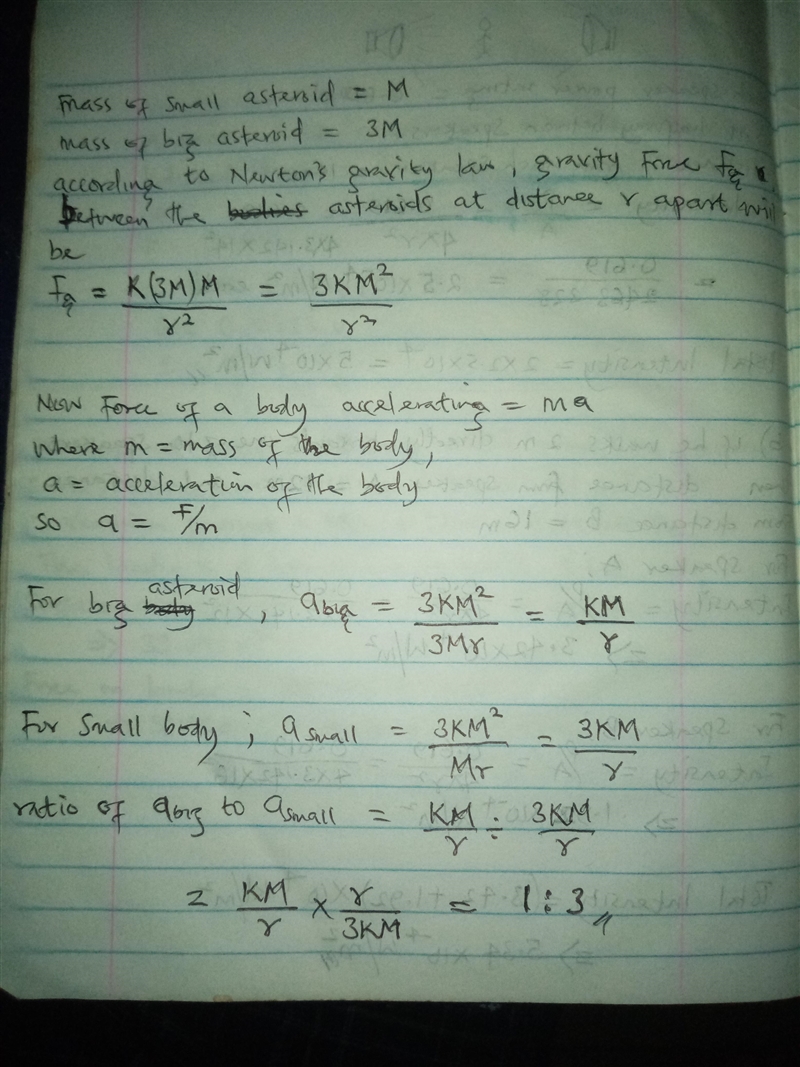 Mass of small asteroid = M
mass of big asteroid = 3M
according to Newton's gravity law, gravity Force Fg
between the bodies asteroids at distance r apart will
be
Fg = K(3M)M / r² = 3KM² / r²
Now Force of a body accelerating = ma
where m = mass of the body,
a = acceleration of the body
so a = F/m
For big body asteroid, a big = 3KM² / 3Mr = KM / r
For small body; a small = 3KM² / Mr = 3KM / r
ratio of a big to a small = KM / r ÷ 3KM / r
= KM / r × r / 3KM = 1:3